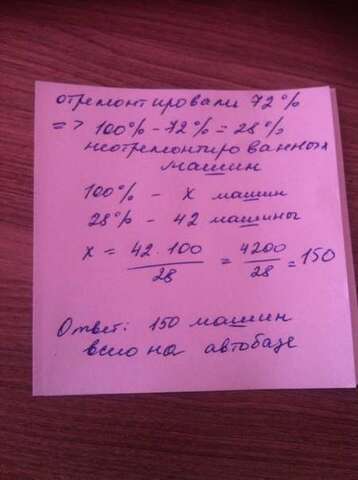 отремонтировали 72%
=> 100% - 72% = 28%
неотремонтированных
машин
100% - х машин
28% - 42 машины
х = 42 · 100 / 28 = 4200 / 28 = 150
Ответ: 150 машин
всио на автобазе